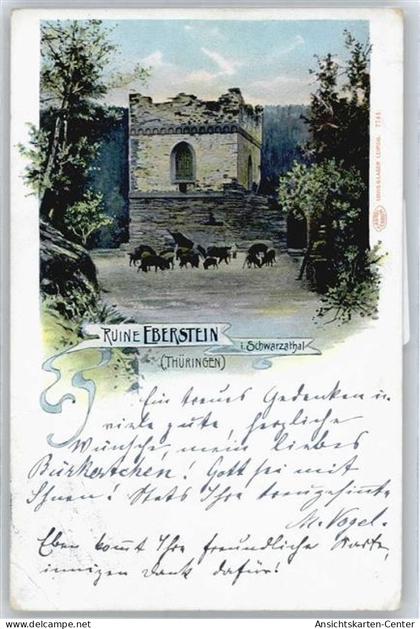 RUINE EBERSTEIN
i. Schwarzathal
(THÜRINGEN)
LOUIS GLASER LEIPZIG. 7741
Ein treues Gedenken u.
viele gute, herzliche
Wünsche, mein liebes
Bürkertchen! Gott sei mit
Ihnen! Stets Ihre treugesinnte
M. Vogel.
Eben kommt Ihre freundliche Karte,
innigen Dank dafür!
www.Ansichtskarten-Center.de